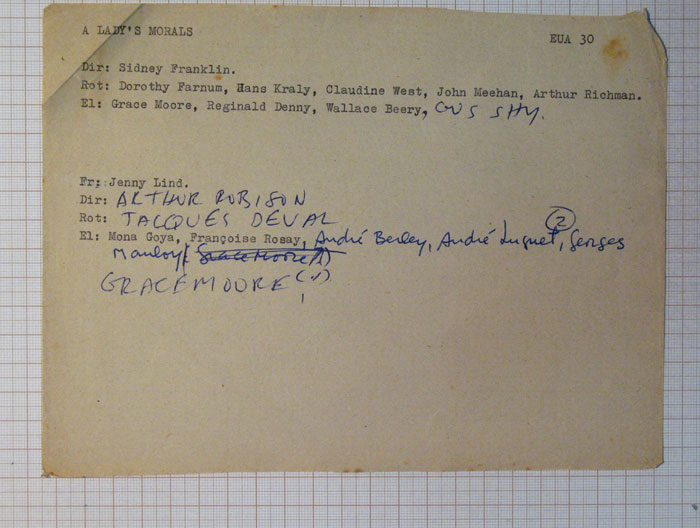 A LADY'S MORALS EUA 30
Dir: Sidney Franklin.
Rot: Dorothy Farnum, Hans Kraly, Claudine West, John Meehan, Arthur Richman.
El: Grace Moore, Reginald Denny, Wallace Beery, GUS SHY.
Fr: Jenny Lind.
Dir: ARTHUR ROBISON
Rot: JACQUES DEVAL
2
El: Mona Goya, Françoise Rosay, André Berley, André Luguet, Georges
Mauloy, Grace Moore
GRACE MOORE (1)